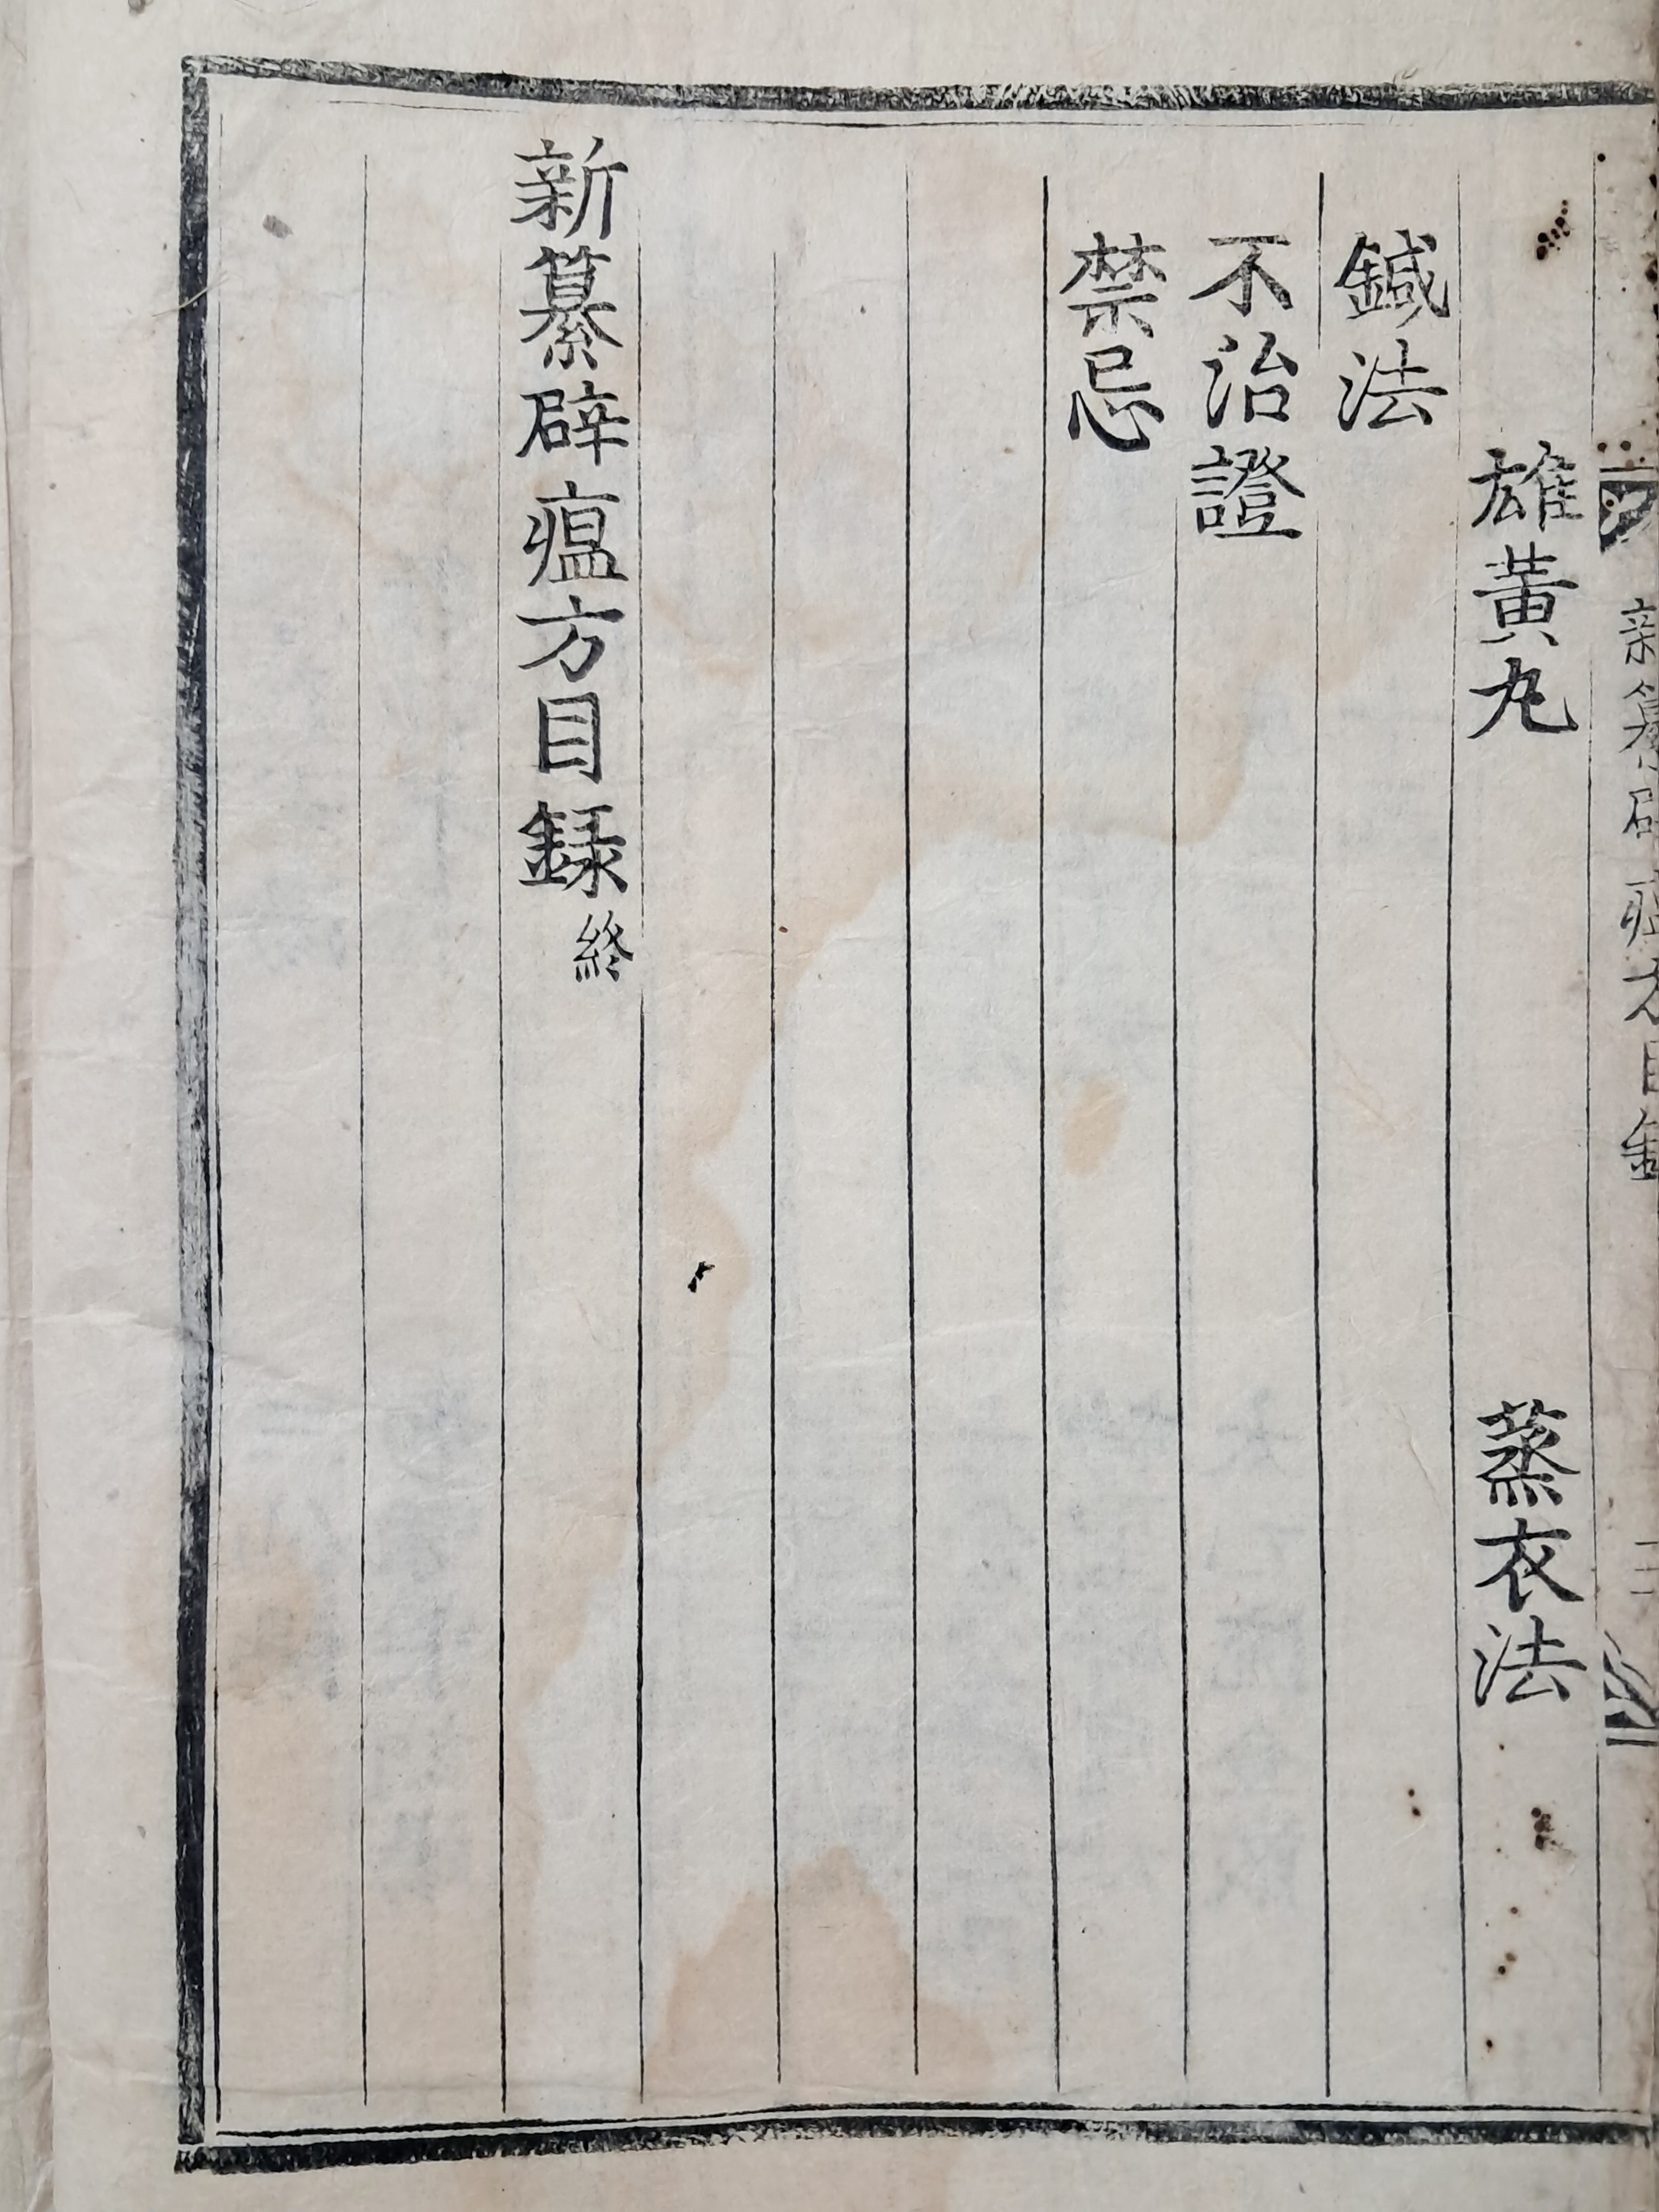 新纂辟瘟方目録 二
雄黃丸 蒸衣法
鍼法
不治證
禁忌
新纂辟瘟方目録終